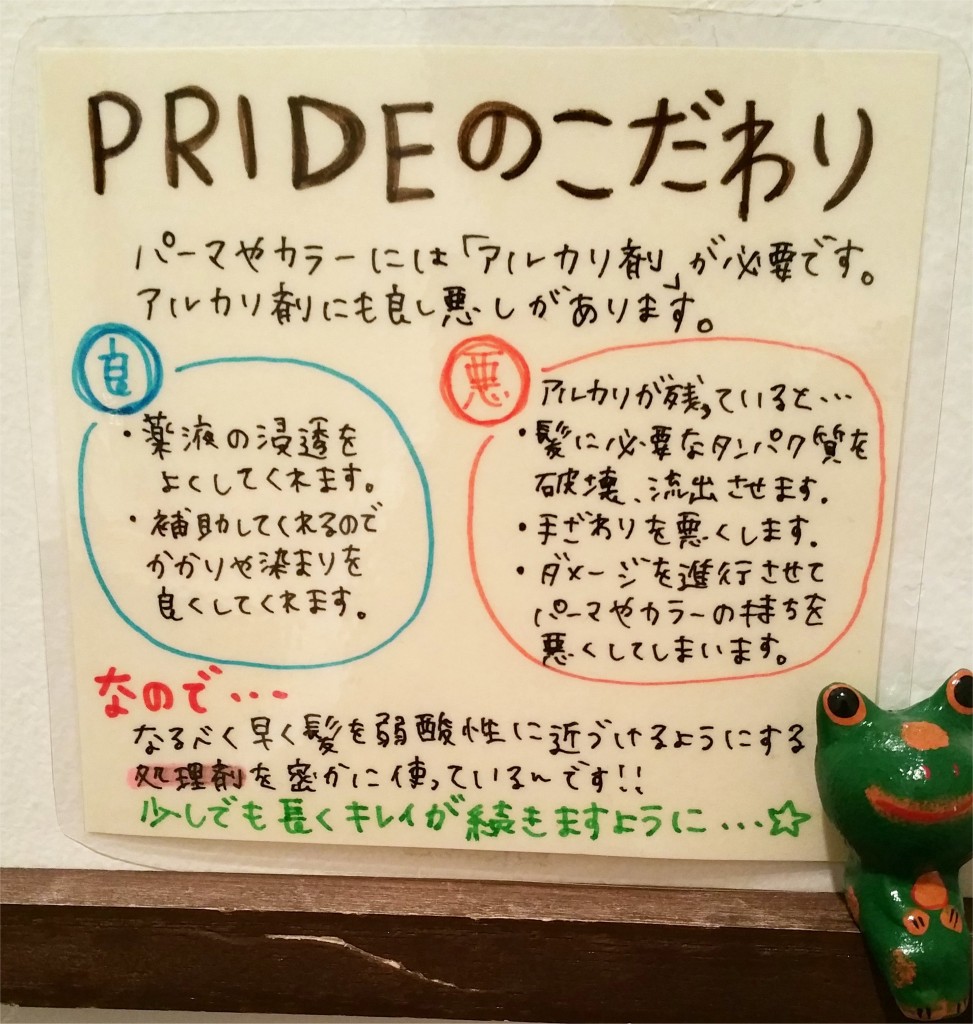 PRIDEのこだわり
パーマやカラーには「アルカリ剤」が必要です。
アルカリ剤にも良し悪しがあります。
良
・薬液の浸透を
よくしてくれます。
・補助してくれるので
かかりや染まりを
良くしてくれます。
悪
アルカリが残っていると…
・髪に必要なタンパク質を
破壊、流出させます。
・手ざわりを悪くします。
・ダメージを進行させて
パーマやカラーの持ちを
悪くしてしまいます。
なので…
なるべく早く髪を弱酸性に近づけるようにする
処理剤を密かに使っているんです!!
少しでも長くキレイが続きますように…☆